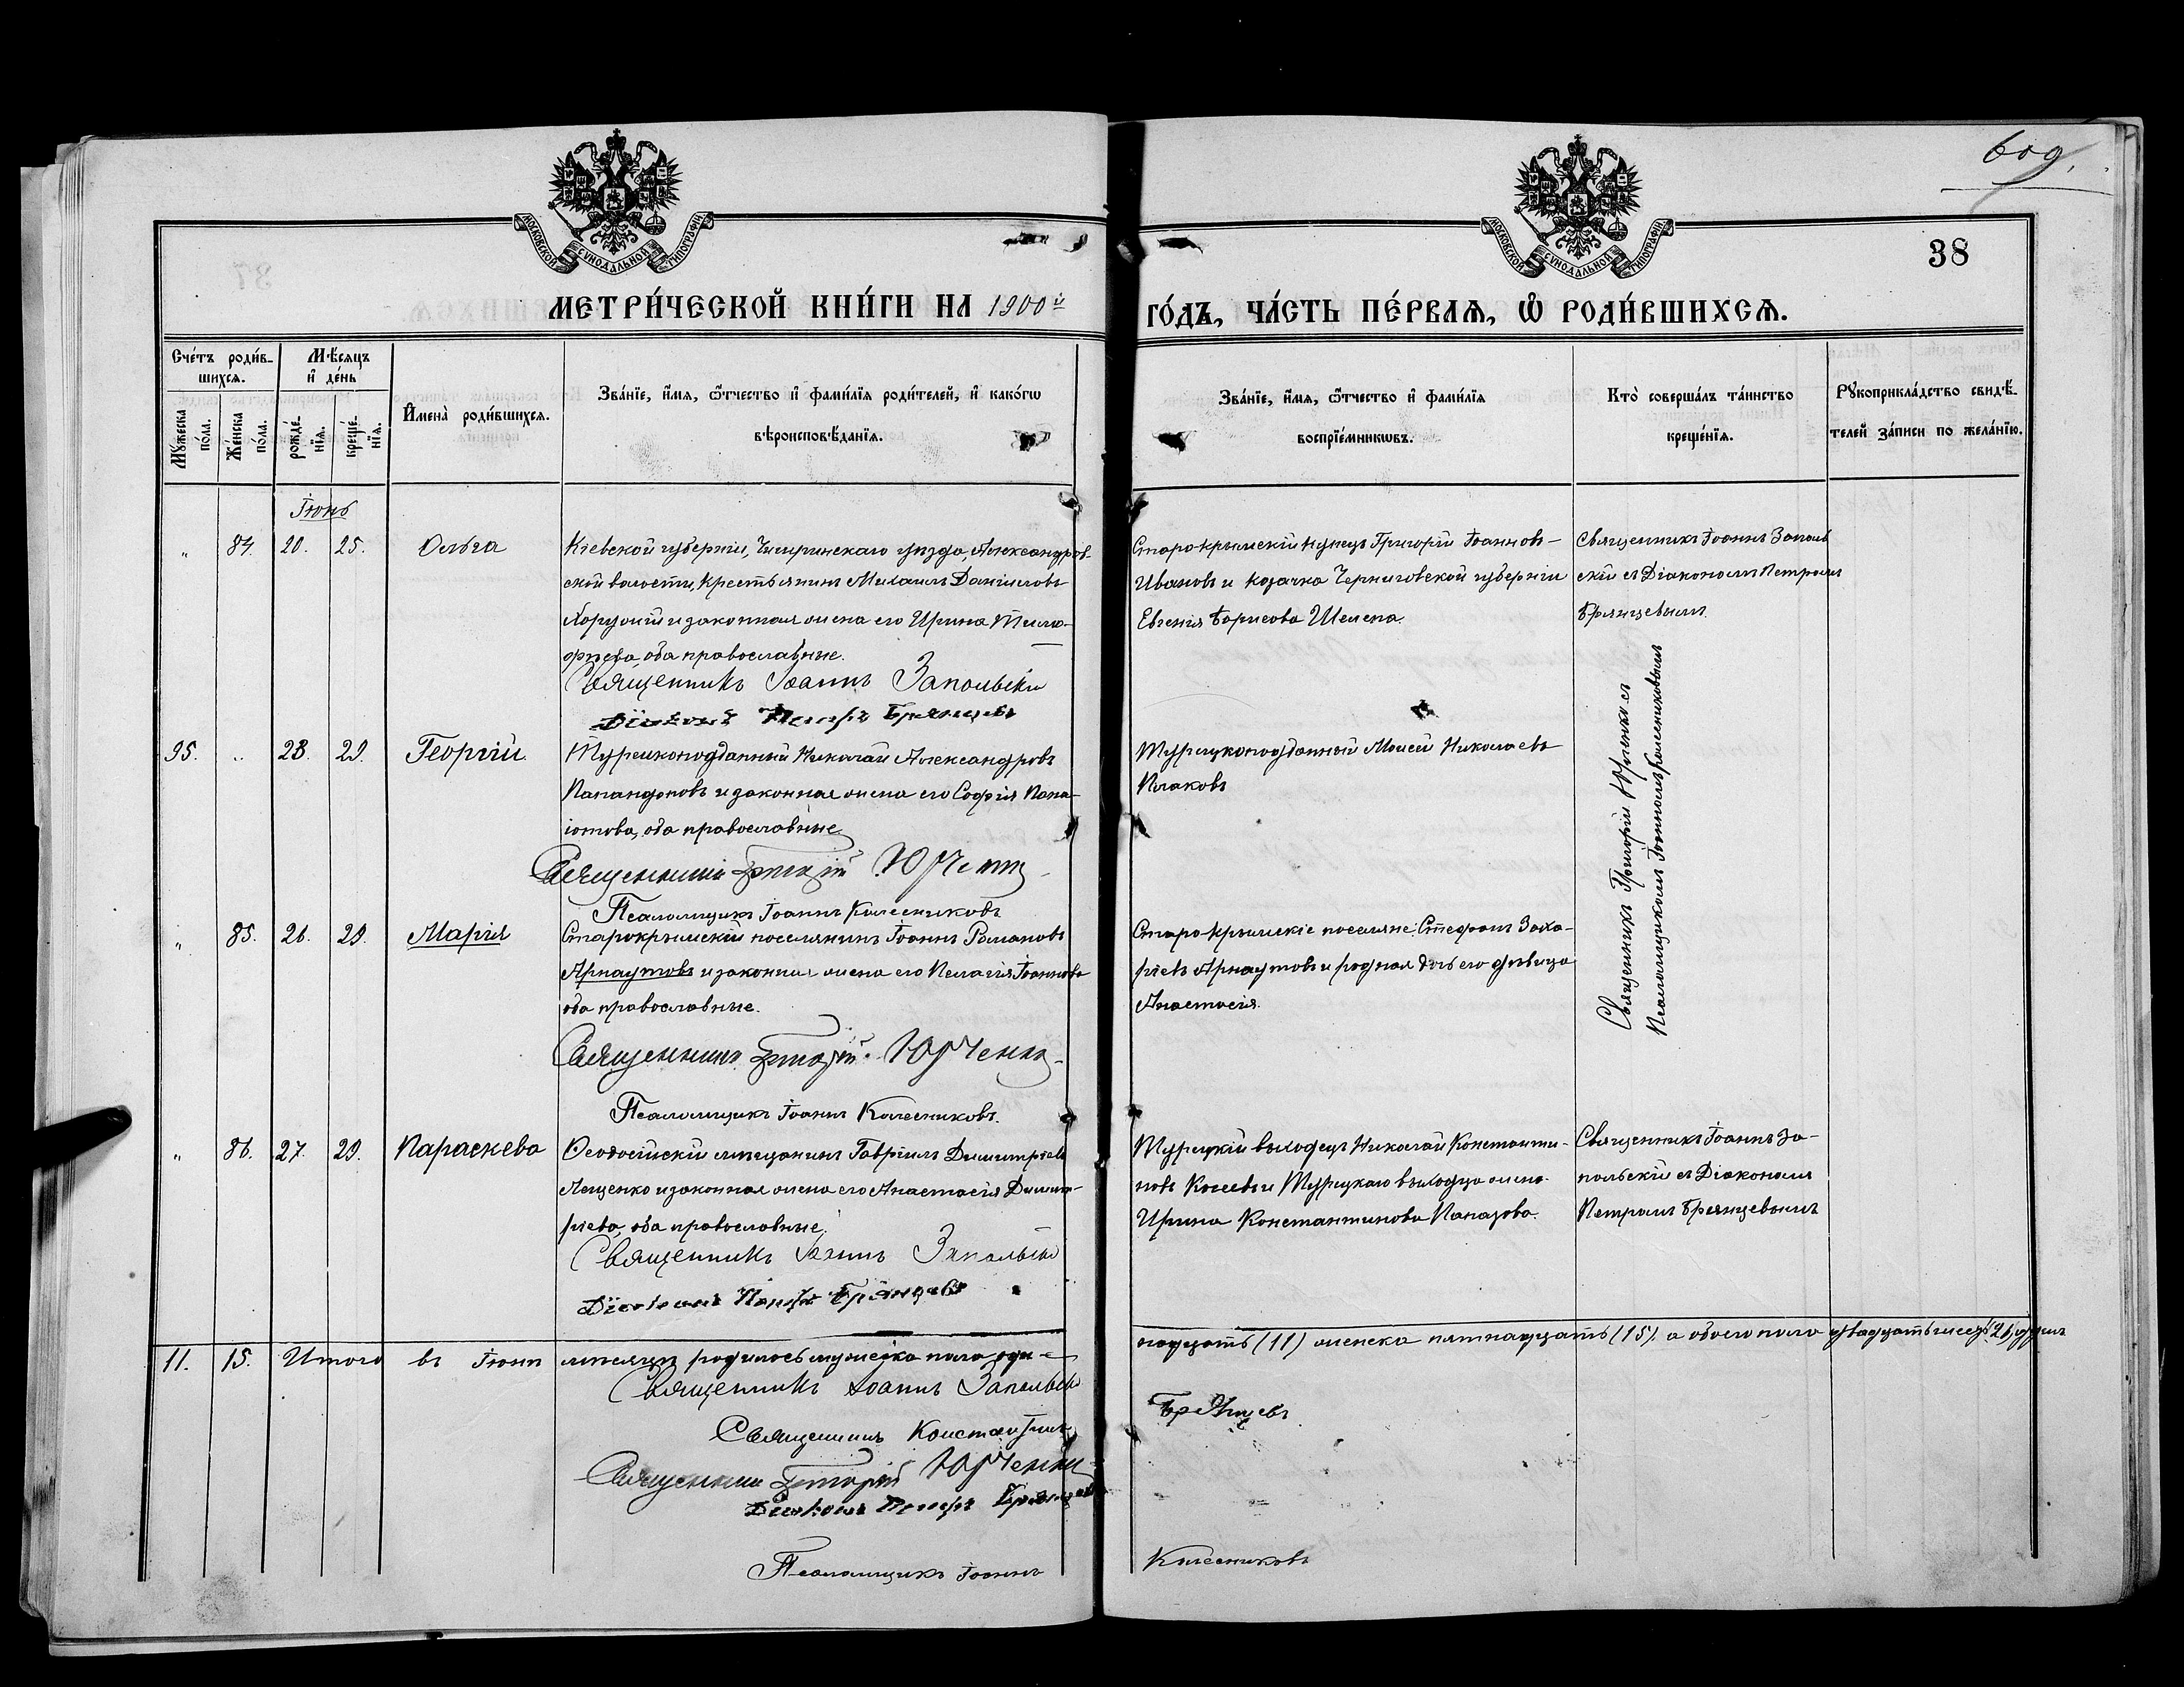 609.
МОСКОВСКОЙ СѴНОДАЛЬНОЙ ТИПОГРАФІИ
МОСКОВСКОЙ СѴНОДАЛЬНОЙ ТИПОГРАФІИ
38
МЕТРИ́ЧЕСКОЙ КНИ́ГИ НА 1900й ГО́ДЪ, ЧА́СТЬ ПЕ́РВАѦ, Ѽ РОДИ́ВШИХСѦ.
Сче́тъ роди́в-
шихсѧ.
Мꙋ́жеска по́ла.
Же́нска по́ла.
Мѣ́сѧцъ
и҆ де́нь
рожде́-
нїѧ.
креще́-
нїѧ.
И҆мена̀ роди́вшихсѧ.
Зва́нїе, и҆́мѧ, ѻ҆́тчество и҆ фами́лїѧ роди́телей, и҆ како́гѡ
вѣроисповѣ́данїѧ.
Зва́нїе, и҆́мѧ, ѻ҆́тчество и҆ фами́лїѧ
воспрїе́мникѡвъ.
Кто̀ соверша́лъ та́инство
креще́нїѧ.
Рꙋкоприкла́дство свидѣ́-
телей за́писи по жела́нїю.
Іюнь
„ 84. 20. 25. Ольга
Кіевской губерніи, Чигиринскаго уѣзда, Александров-
ской волости, крестьянинъ Михаилъ Даніиловъ
и законная жена его Ирина Тимо-
фѣева, оба православные.
Священникъ Іоаннъ Запольскій
Діаконъ Петръ Брянцевъ
Старо-Крымскій купецъ Григорій Іоанновъ-
Ивановъ и козачка Черниговской губерніи
Евгенія Борисова Шелепа.
Священникъ Іоаннъ Заполь
скій съ Діакономъ Петромъ
Брянцевымъ.
95. „ 23. 29. Георгій.
Турецкоподданный Николай Александровъ
и законная жена его Софія Пана-
іотова, оба православные
Священникъ Григорій Юрченко
Псаломщикъ Іоаннъ Колесниковъ
Турецкоподданный Моисей Николаевъ
Плаковъ
Священникъ Григорій Юрченко съ
Псаломщикомъ Іоанномъ Колесниковымъ
„ 85. 26. 29. Марія
Старокрымскій поселянинъ Іоаннъ Романовъ
Арнаутовъ и законная жена его Пелагія Іоаннова
оба православные.
Священникъ Григорій Юрченко
Псаломщикъ Іоаннъ Колесниковъ.
Старо-Крымскіе поселяне: Стефанъ Заха-
ріевъ Арнаутовъ и родная дочь его дѣвица
Анастасія.
„ 86. 27. 29. Параскева
Ѳеодосійскій мѣщанинъ Гавріилъ Димитріевъ
Лещенко и законная жена его Анастасія Димит-
ріева, оба православные.
Священникъ Іоаннъ Запольскій
Діаконъ Петръ Брянцевъ
Турецкій выходецъ Николай Константи-
новъ и Турецкаго выходца жена
Ирина Константинова Папазова.
Священникъ Іоаннъ За-
польскій съ Діакономъ
Петромъ Брянцевымъ
11. 15. Итого въ Іюнѣ мѣсяцѣ родилось мужеска пола оди-
надцать (11) женска пятнадцать (15) а обоего пола двадцать шесть (26) душъ
Священникъ Іоаннъ Запольскій
Священникъ Константинъ
Брянцевъ.
Священникъ Григорій Юрченко
Діаконъ Петръ Брянцевъ
Псаломщикъ Іоаннъ
Колесниковъ